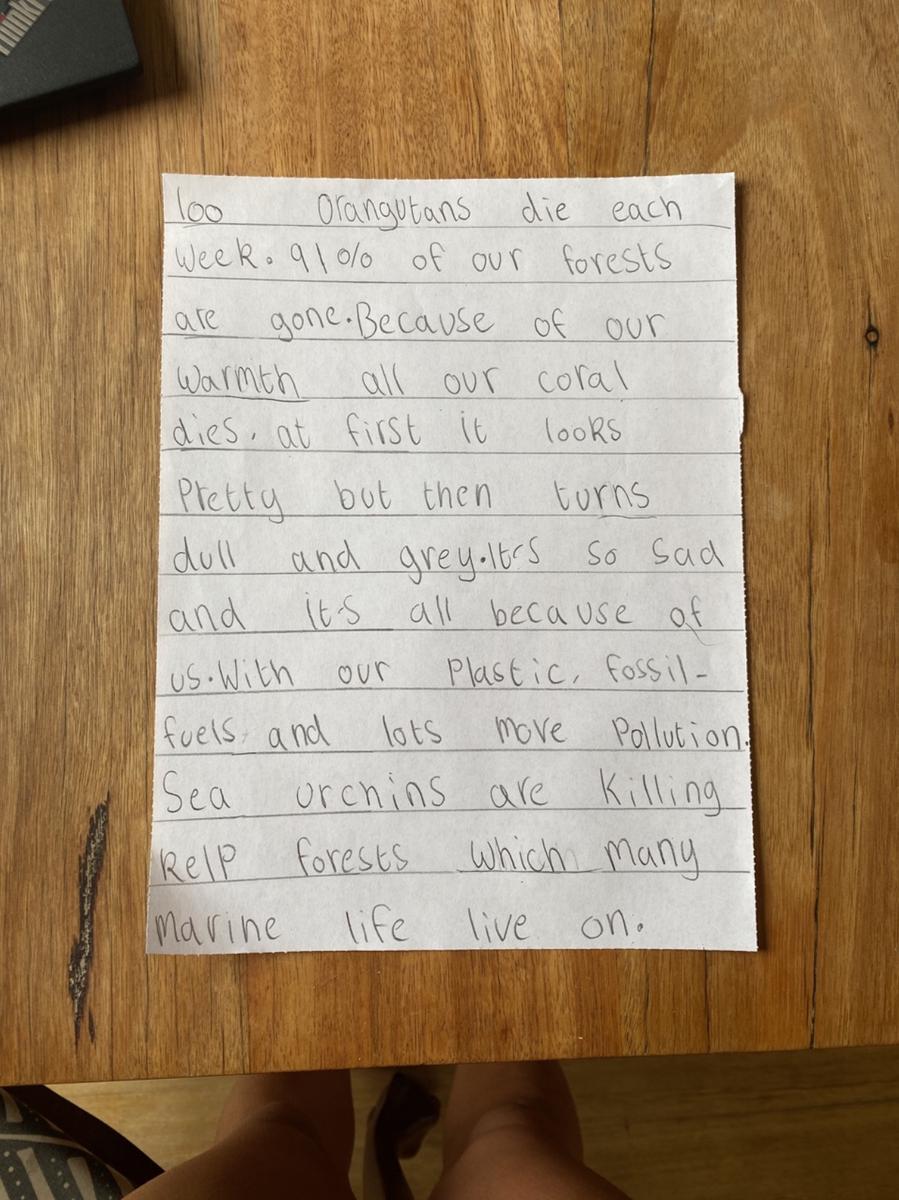 100 Orangutans die each
Week. 91% of our forests
are gone. Because of our
Warmth all our coral
dies. at first it looks
Pretty but then turns
dull and grey. It's so sad
and it's all because of
us. With our Plastic, fossil-
fuels and lots more Pollution.
Sea urchins are killing
kelp forests which many
marine life live on.